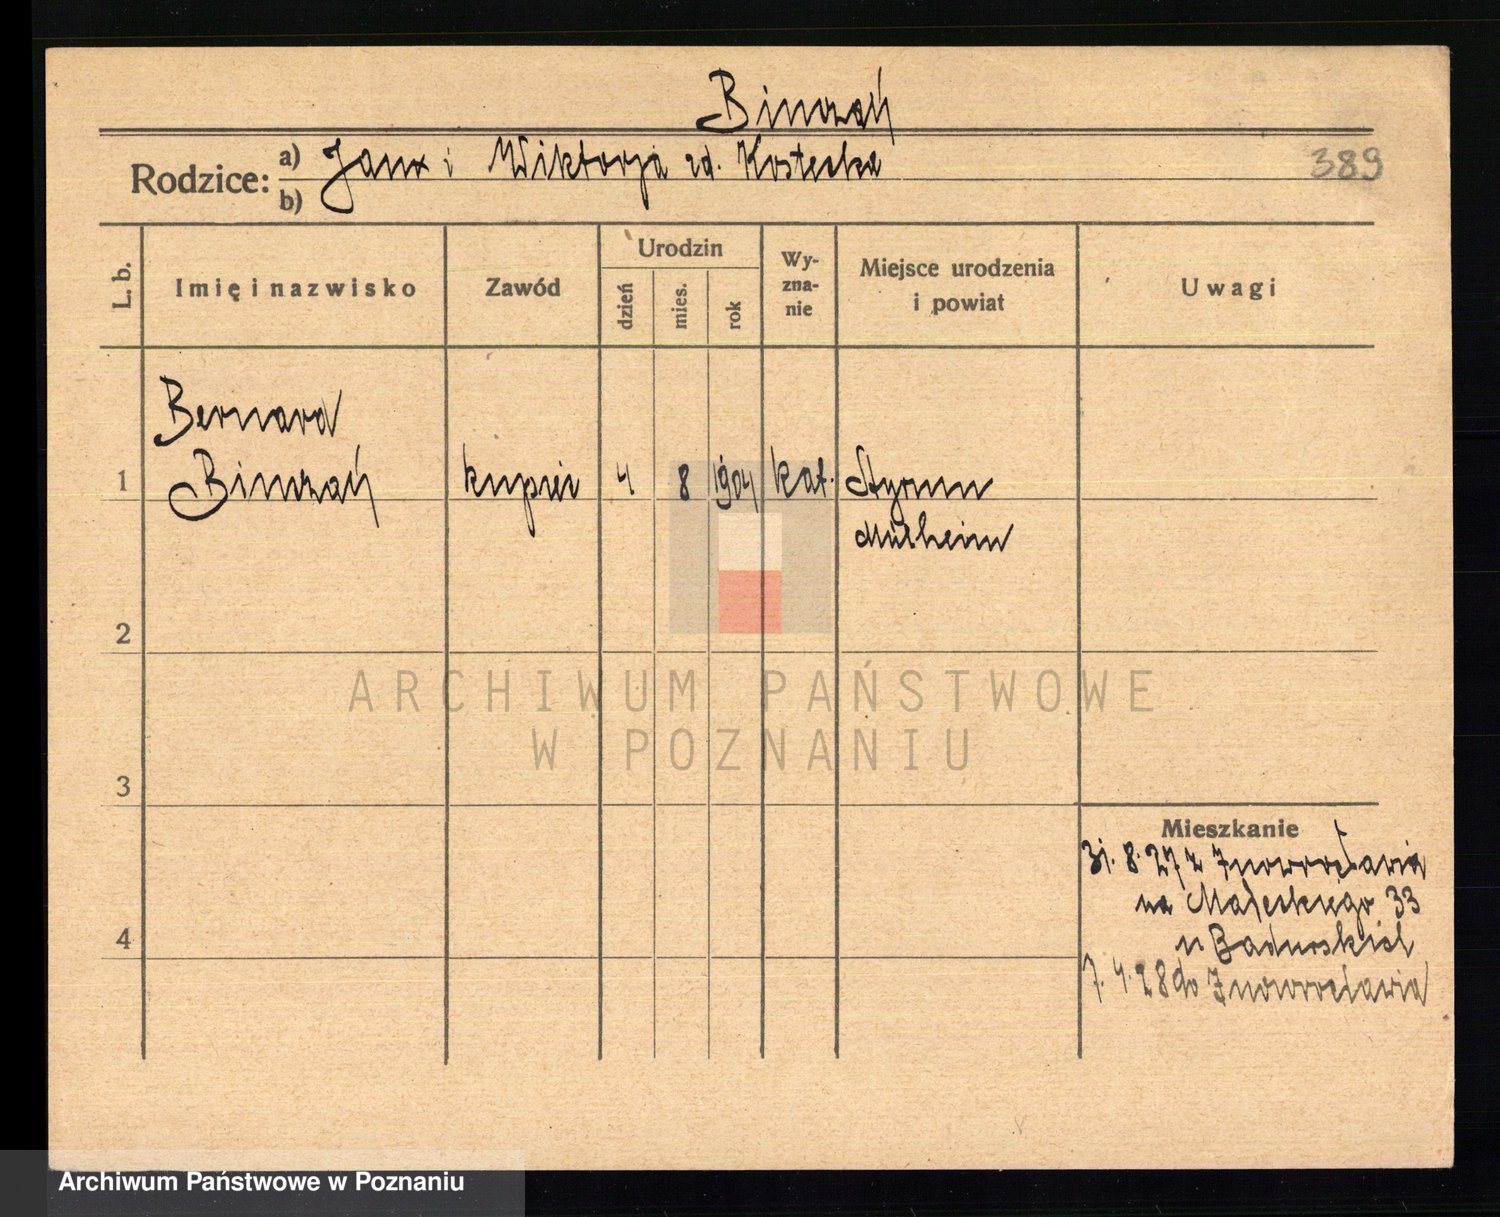 Binczak
Rodzice: a) Jan i Wiktorja zd. Kostecka
b)
389
L. b.
Imię i nazwisko
Zawód
Urodzin
dzień
mies.
rok
Wy-
zna-
nie
Miejsce urodzenia
i powiat
Uwagi
Bernard
1 Binczak kupiec 4 8 1904 kat. Styrum
Mülheim
2
ARCHIWUM PAŃSTWOWE
W POZNANIU
3
Mieszkanie
31.8.27 z Inowrocławia
na Małeckiego 33
u Badurskiej
4
7.4.28 do Inowrocławia
Archiwum Państwowe w Poznaniu